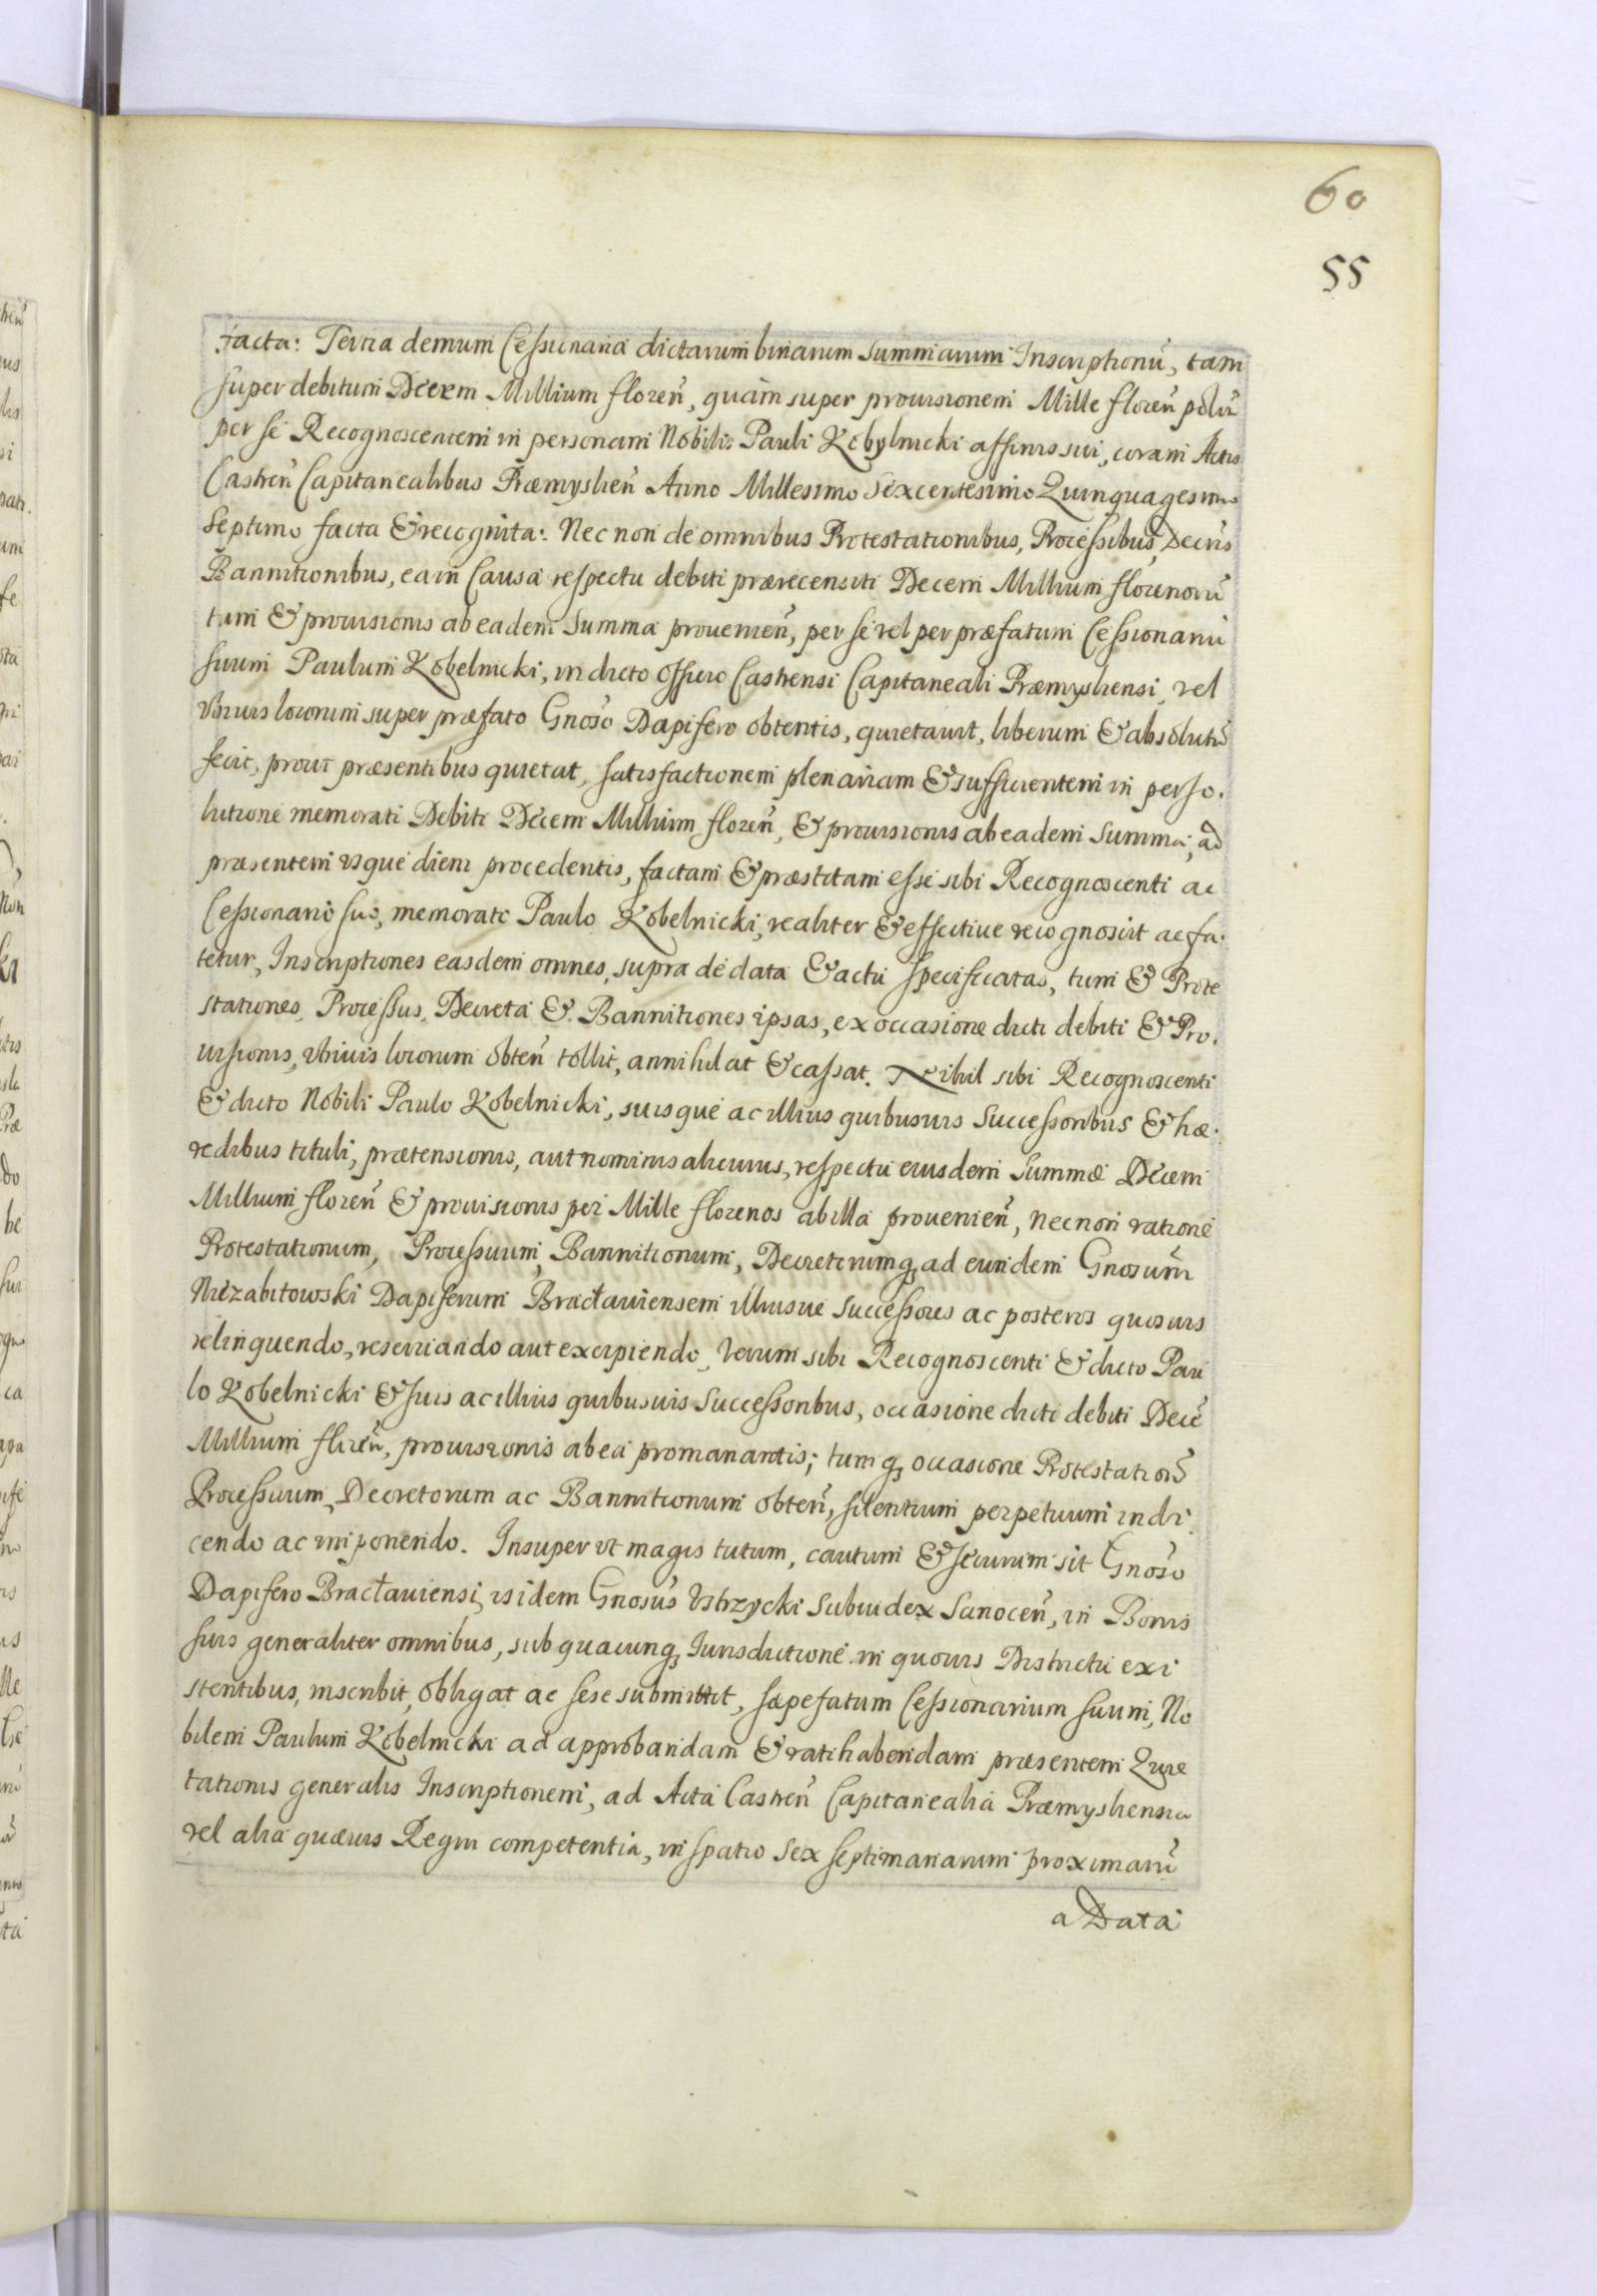 60
55
facta: Tertia demum Cessionaria dictarum binarum summarum Inscriptionũ, tam
super debitum Decem Millium floreñ, quàm super prouisionem Mille floreñ poloñ
per se Recognoscentem in personam Nobilis Pauli Kobylnicki affinis sui, coram Actis
Castreñ Capitanealibus Præmyslieñ Anno Millesimo Sexcentesimo Quinquagesimo
Septimo facta & recognita: Nec non de omnibus Protestationibus, Processibus, Decris
Bannitionibus, ea in Causa respectu debiti prærecensiti Decem Millium florenorũ
tum & prouisionis ab eadem Summa prouenieñ, per se vel per præfatum Cessionariũ
suum Paulum Kobelnicki, in dicto Officio Castrensi Capitaneali Præmysliensi, vel
vbiuis locorum super præfato Gnoso Dapifero obtentis, quietauit, liberum & absolutũ
fecit, prout præsentibus quietat, satisfactionem plenariam & sufficientem in perso.
lutione memorati Debiti Decem Millium floreñ, & prouisionis ab eadem summa, ad
præsentem vsque diem procedentis, factam & præstitam esse sibi Recognoscenti ac
Cessionario suo, memorato Paulo Kobelnicki, realiter & effectiue recognoscit ac fa.
tetur, Inscriptiones easdem omnes, supra de data & actu specificatas, tum & Prote
stationes, Processus, Decreta & Bannitiones ipsas, ex occasione dicti debiti & Pro.
uisionis, vbiuis locorum obteñ tollit, annihilat & cassat. Nihil sibi Recognoscenti
& dicto Nobili Paulo Kobelnicki, suisque ac illius quibusuis Successoribus & hæ.
redibus tituli, prætensionis, aut nominis alicuius, respectu eiusdem Summæ Decem
Millium floreñ & prouisionis per Mille florenos ab illa prouenieñ, necnon ratione
Protestationum, Processuum, Bannitionum, Decretorumq, ad eundem Gnosum
Niezabitowski Dapiferum Bracłauiensem illiusue Successores ac posteros quosuis
relinquendo, reseruando aut excipiendo, Verum sibi Recognoscenti & dicto Pau
lo Kobelnicki & suis ac illius quibusuis Successoribus, occasione dicti debiti Decẽ
Millium floreñ, prouisionis ab ea promanantis; tumq, occasione Protestationũ
Processuum, Decretorum ac Bannitionum obteñ, silentium perpetuum indi
cendo ac imponendo. Insuper vt magis tutum, cautum & securum sit Gnoso
Dapifero Bracłauiensi, isidem Gnosus Vstrzycki Subiudex Sanoceñ, in Bonis
suis generaliter omnibus, sub quacunq, Iurisdictione in quouis Districtu exi
stentibus, inscribit, obligat ac sese submittit, sæpefatum Cessionarium suum, No
bilem Paulum Kobelnicki ad approbandam & ratihabendam præsentem Quie
tationis generalis Inscriptionem, ad Acta Castreñ Capitanealia Præmysliensia
vel alia quæuis Regni competentia, in spatio Sex septimanarum proximarũ
a Data